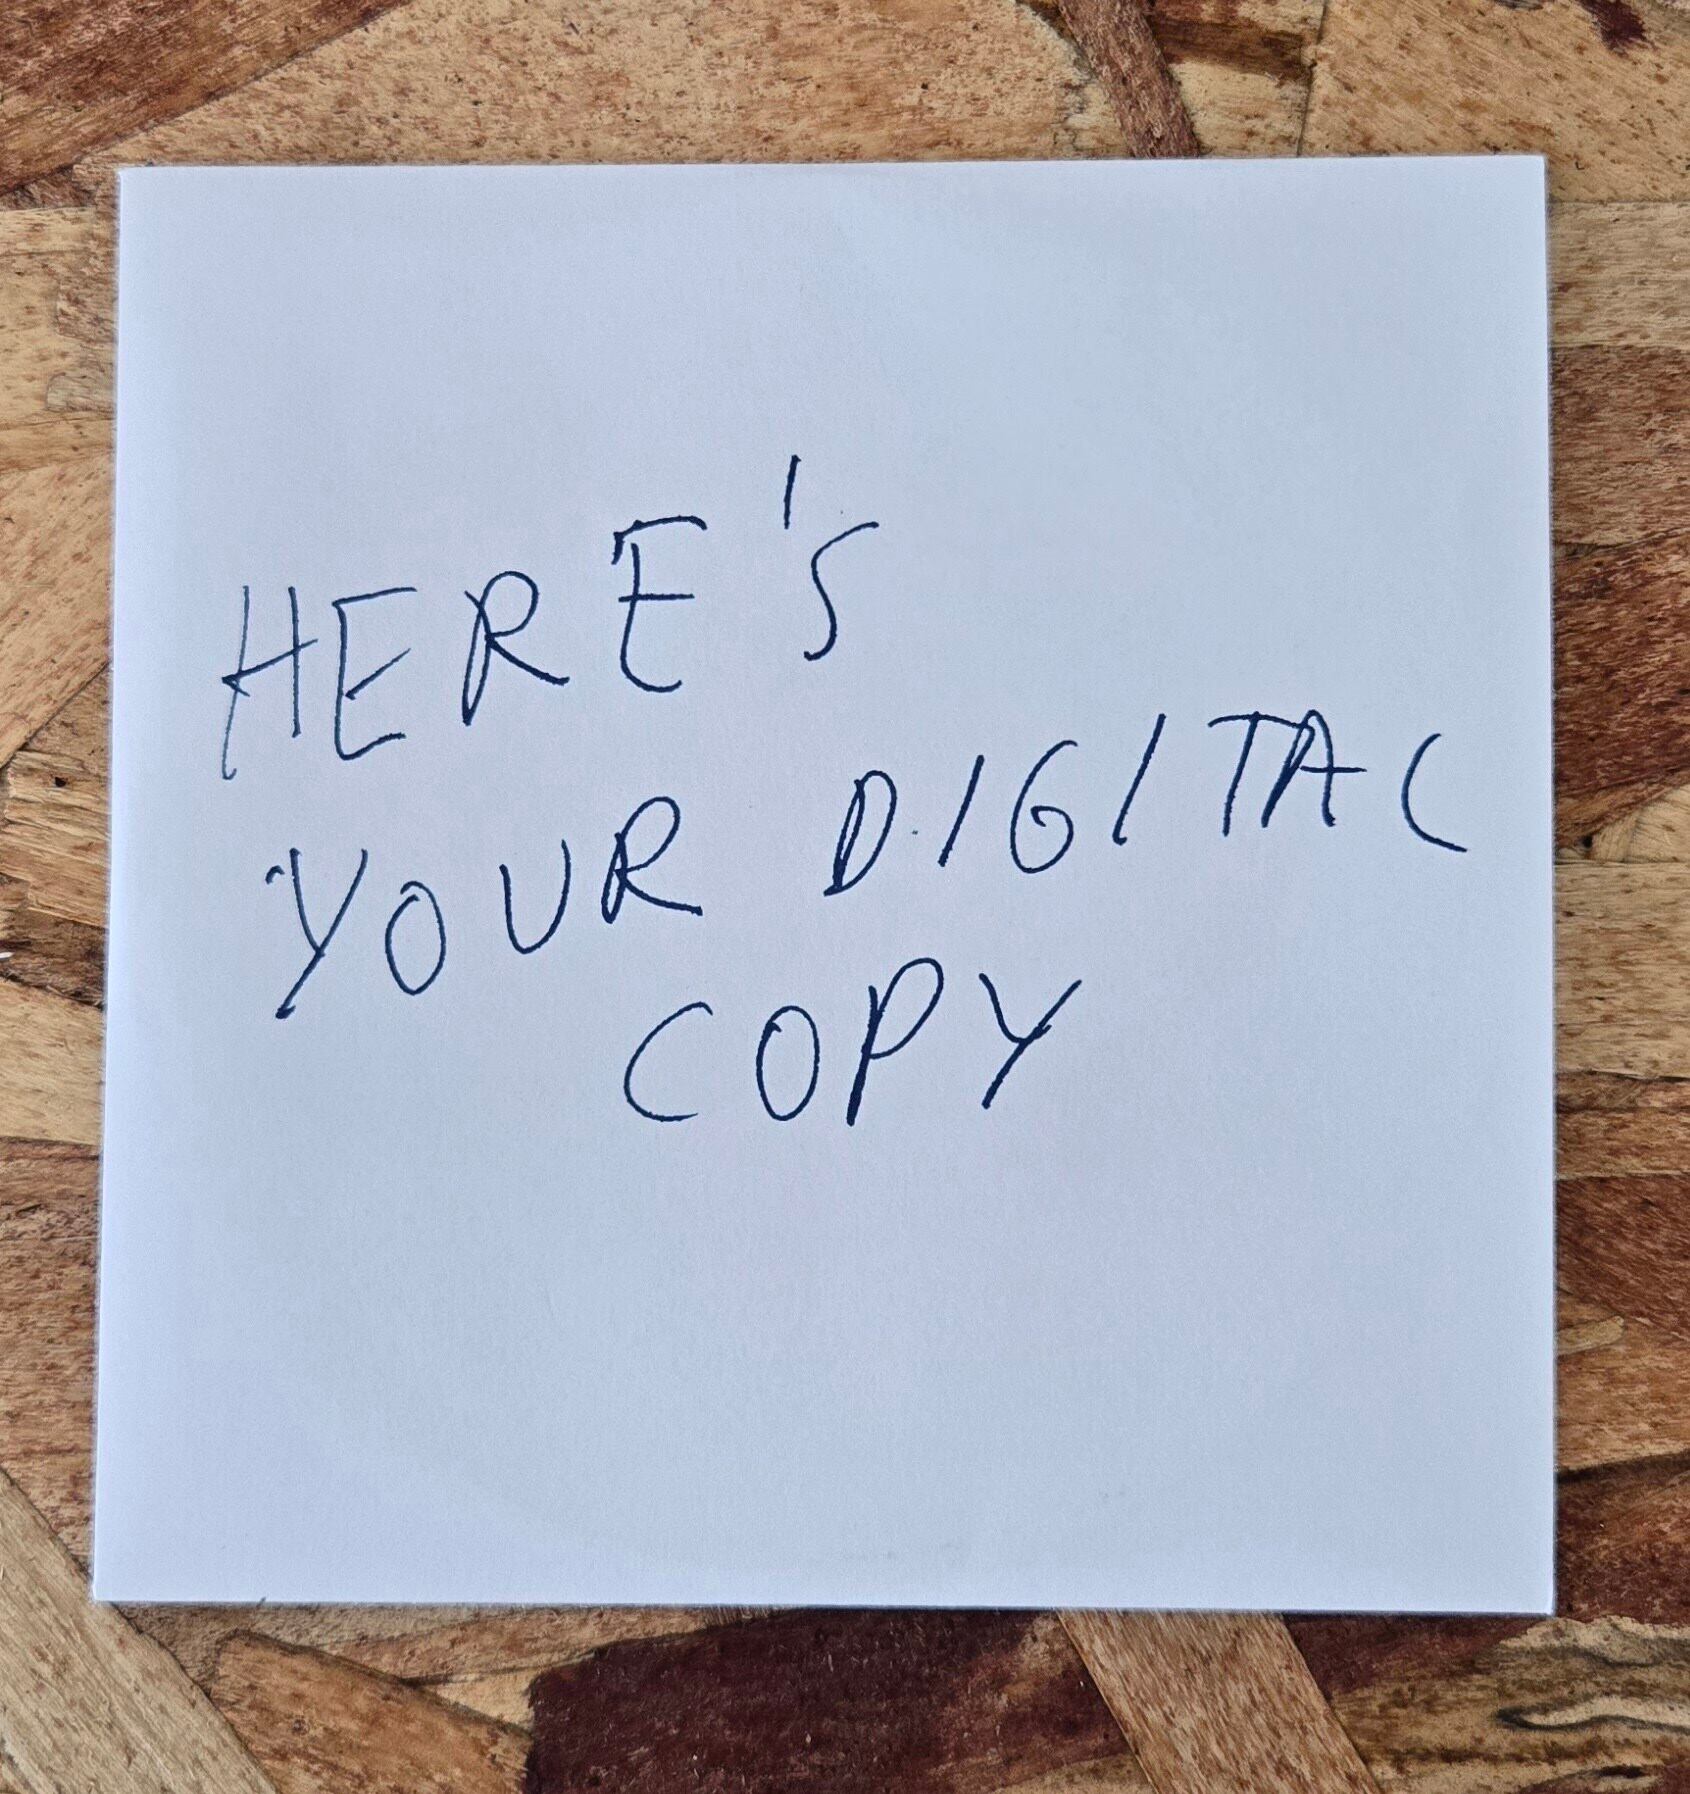 HERE'S
YOUR DIGITAL
COPY